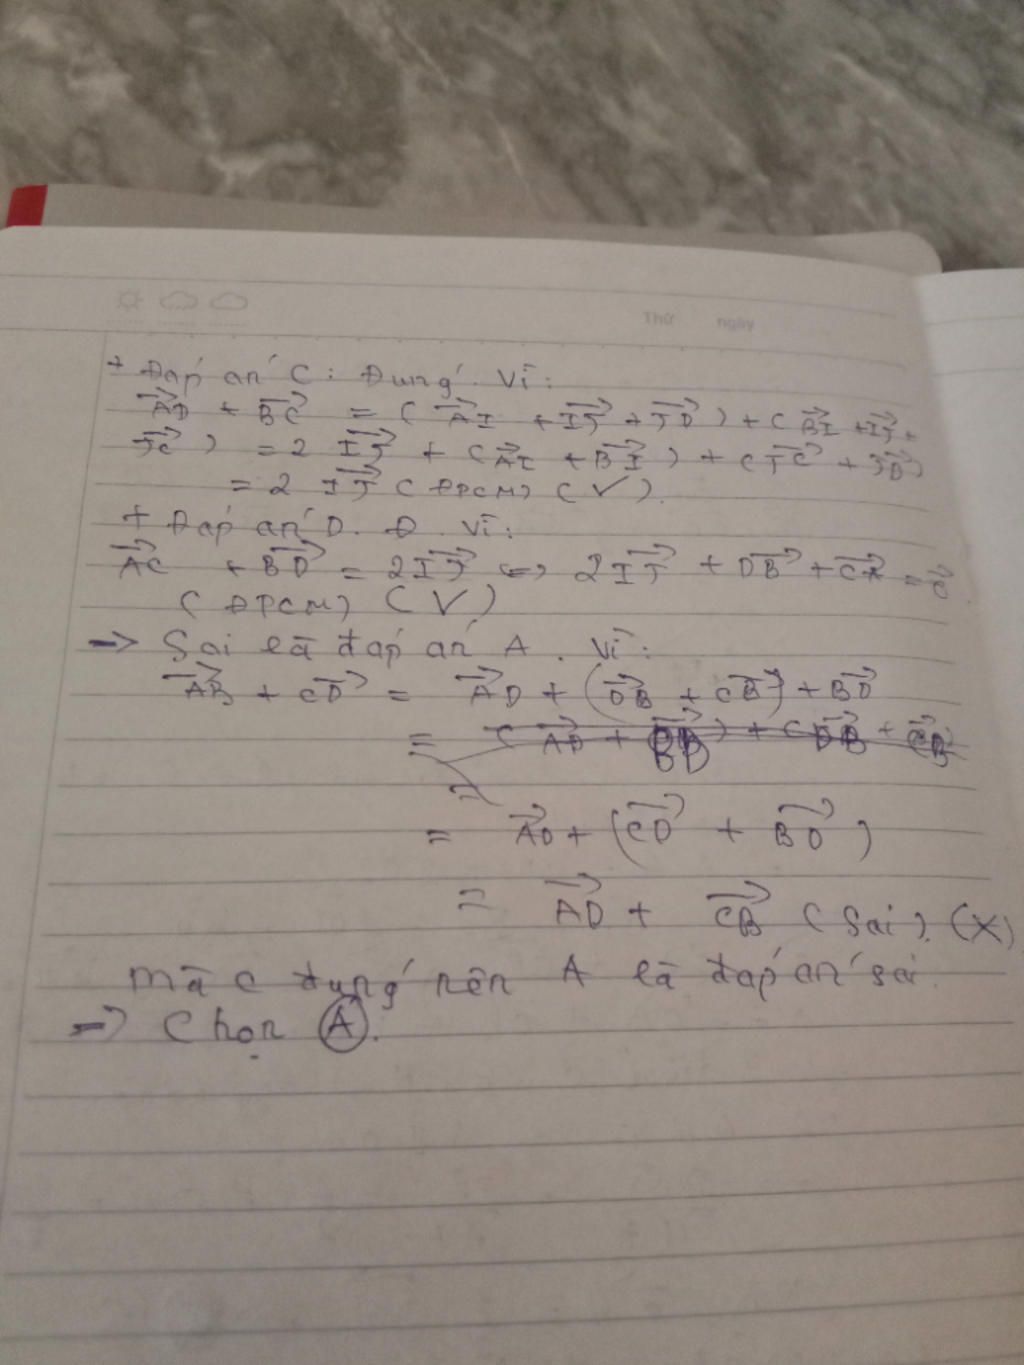 Thứ ngày
+ Đáp án C: Đúng. Vì:
AD + BC = (AI + IJ + JD) + (BI + IJ +
JC) = 2 IJ + (AI + BI) + (JC + JD)
= 2 IJ (ĐPCM) (✓).
+ Đáp án D. Đ. Vì:
AC + BD = 2IJ <=> 2IJ + DB + CA = 0
(ĐPCM) (✓)
=> Sai là đáp án A. Vì:
AB + CD = AD + (DB + CB) + BD
=
=
= AD + (CD + BD)
= AD + CB (Sai). (X)
Mà C đúng nên A là đáp án sai.
=> Chọn A.